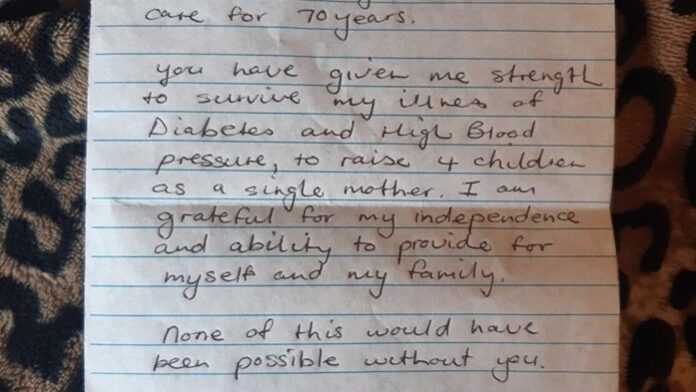 care for 70 years.
you have given me strength
to survive my illnes of
Diabetes and High Blood
pressure, to raise 4 children
as a single mother. I am
grateful for my independence
and ability to provide for
myself and my family.
None of this would have
been possible without you.